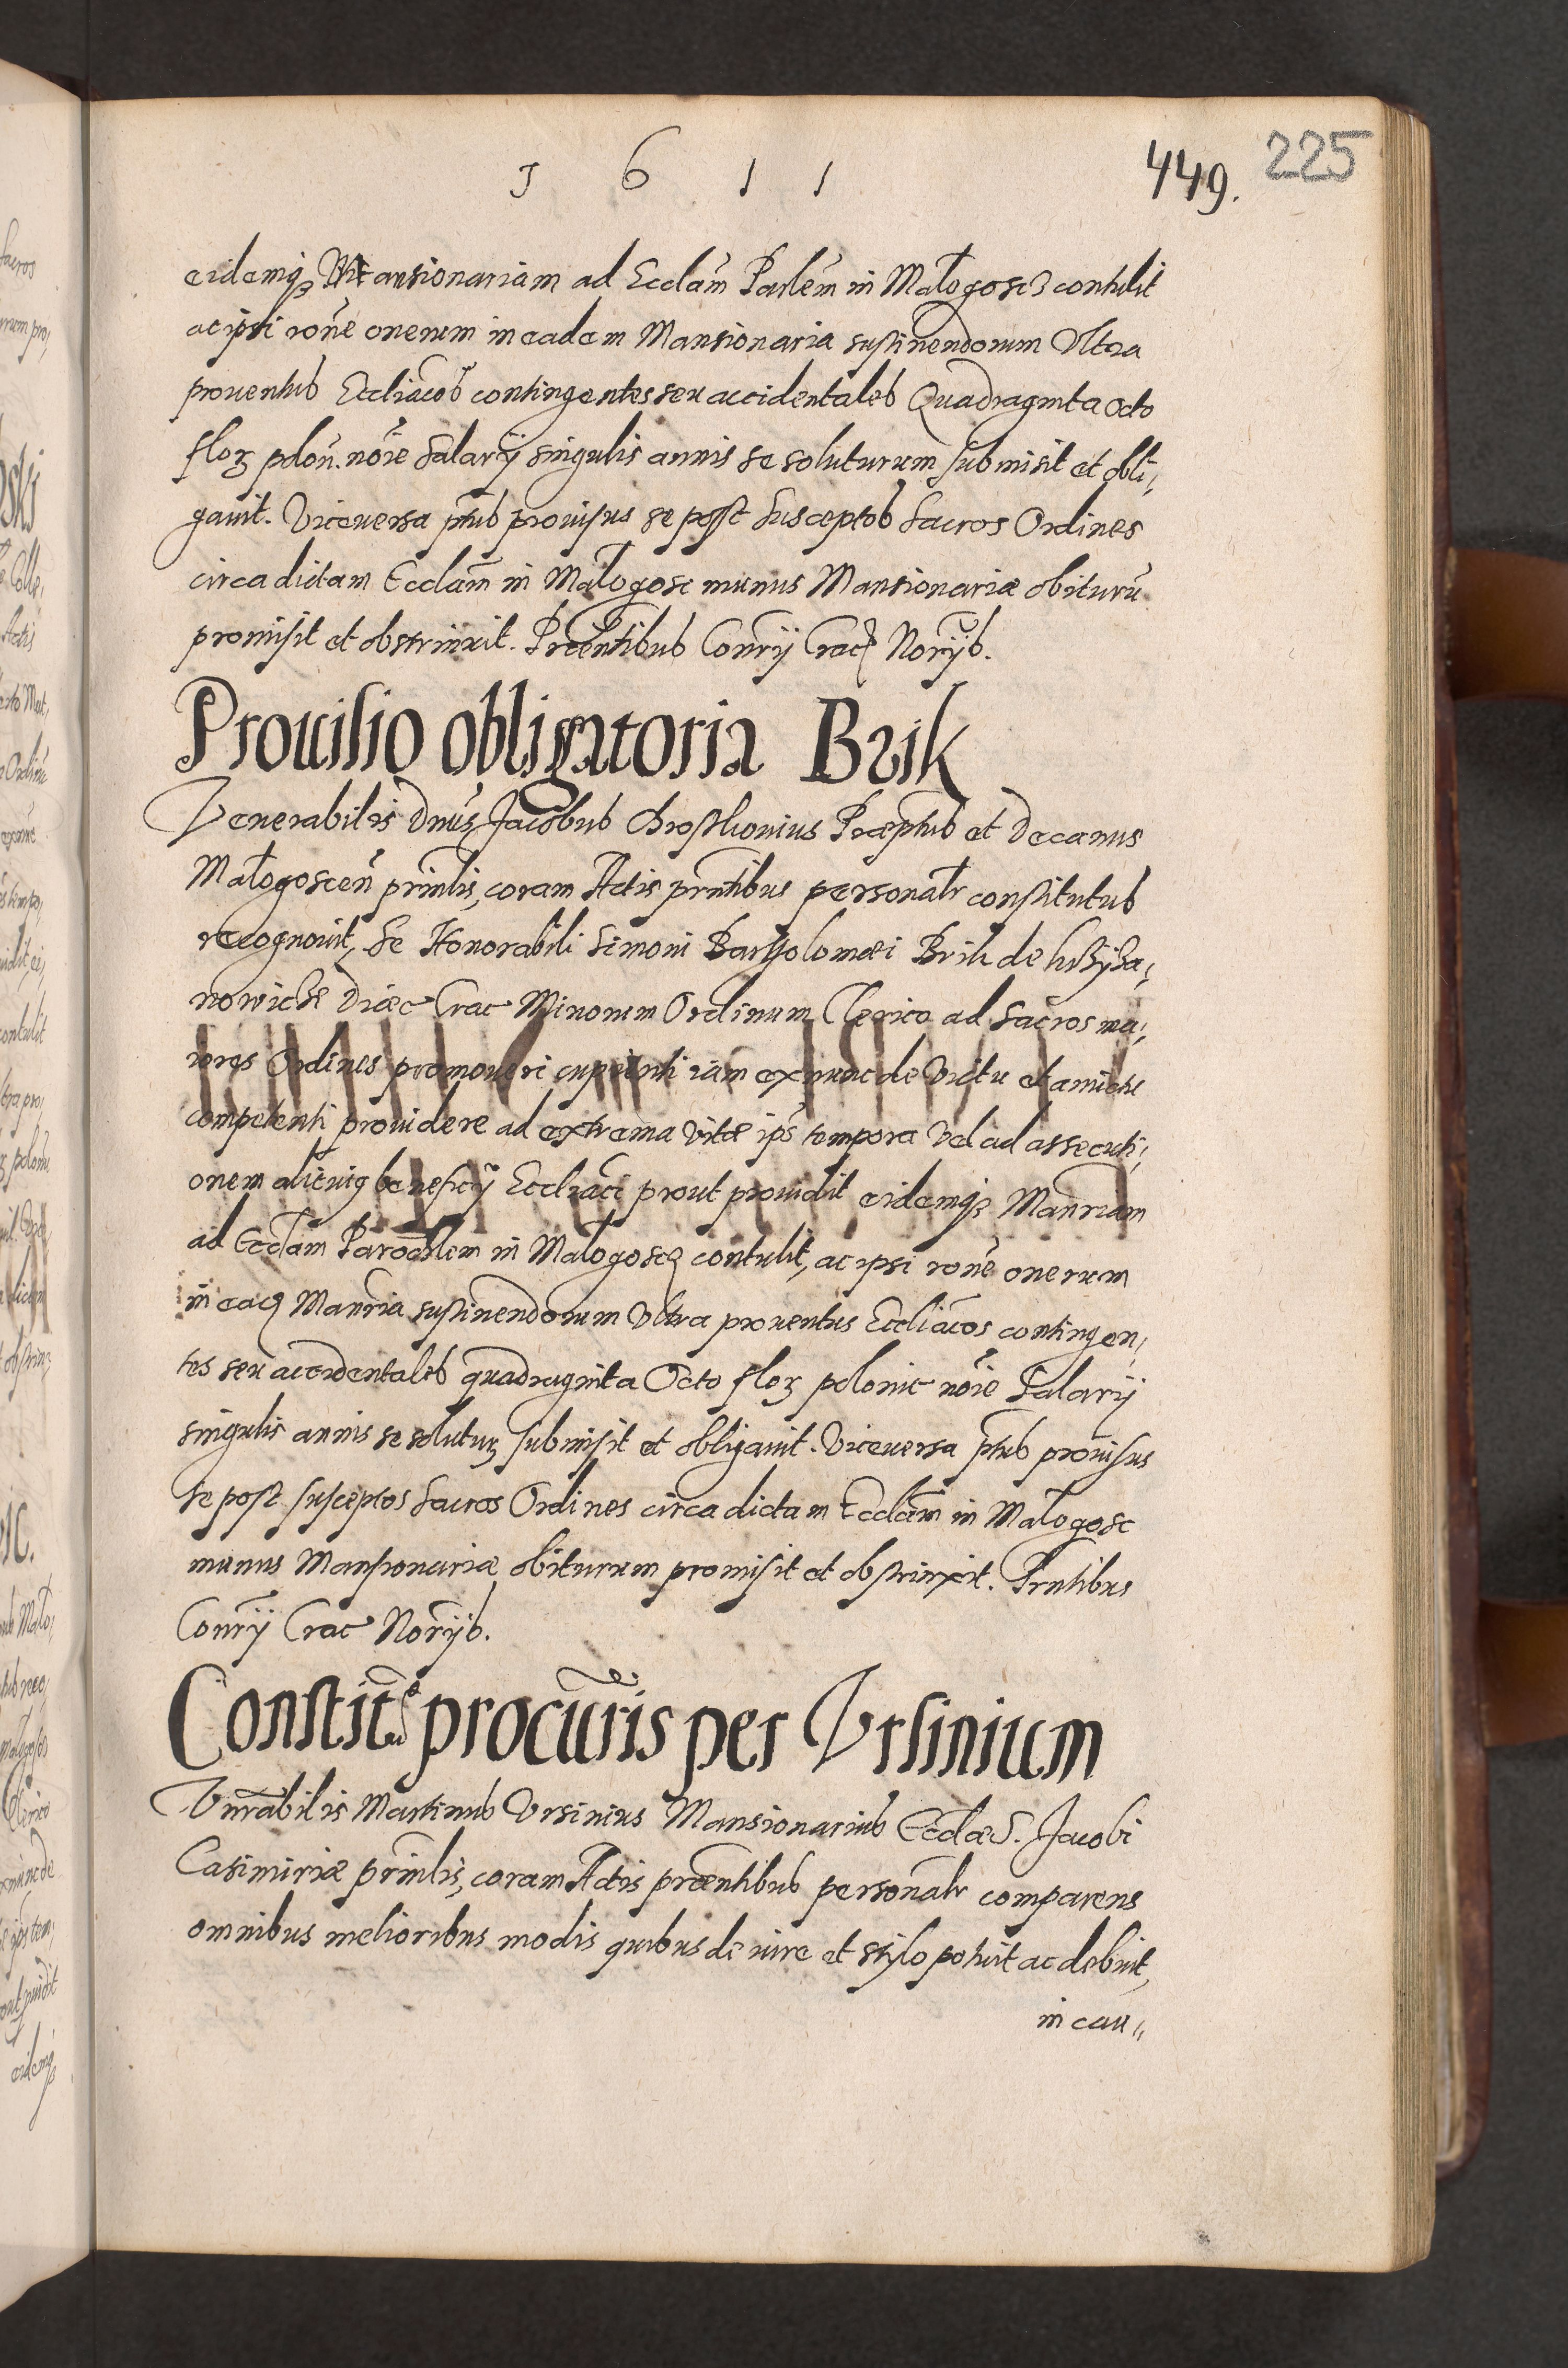 1 6 1 1
449. 225
eidemqз Mansionariam ad Ecclam̃ Parlem̃ in Małogoscz contulit
ac ipsi rone onerum in eadem Mansionaria sustinendorum Vltra
prouentus Eccliacos contingentes seu accidentales Quadraginta octo
flor polon. noie Salarij singulis annis se soluturum submisit et obli,
gauit. Viceuersa ptus prouisus se post Susceptos Sacros Ordines
circa dictam Ecclam in Małogosc munus Mansionariæ obiturũ
promisit et obstrinxit. Præntibus Conrij Crac Norijs.
Prouisio obligatoria Brik
Venerabilis Dnus Jacobus Chrostkouius Præptus et Decanus
Małogoscen prinlis, coram Actis prntibus personalr constitutus
recognouit, Se Honorabili Simoni Bartholomæi Brik de
nowicze Diæc Crac Minorum Ordinum Clerico ad Sacros ma,
iores Ordines promoueri cupienti iam ex nunc de Victu et amictu
competenti prouidere ad extrema vitæ ips tempora Vel ad assecuti,
onem alicuiq beneficij Eccliaci prout prouidit eidemqз Manriam
ad Ecclam Parochlem in Małogoscz contulit, ac ipsi rone onerum
in eadz Manria sustinendorum Vltra prouentus Eccliacos contingen,
tes seu accidentales quadraginta Octo flor polonic noie Salarij
singulis annis se solutur submisit et obligauit. Viceuersa ptus prouisus
se post susceptos Sacros Ordines circa dictam Ecclam in Małogosc
munus Mansionariæ obiturum promisit et obstrinxit. Prntibus
Conrij Crac Norijs.
Constit procuris per Vrsinium
Vnrabilis Martinus Vrsinius Mansionarius Ecclæ S. Jacobi
Casimiriæ prinlis, coram Actis præntibus personalr comparens
omnibus melioribus modis quibus de iure et stylo potuit ac debuit,
in cau,,